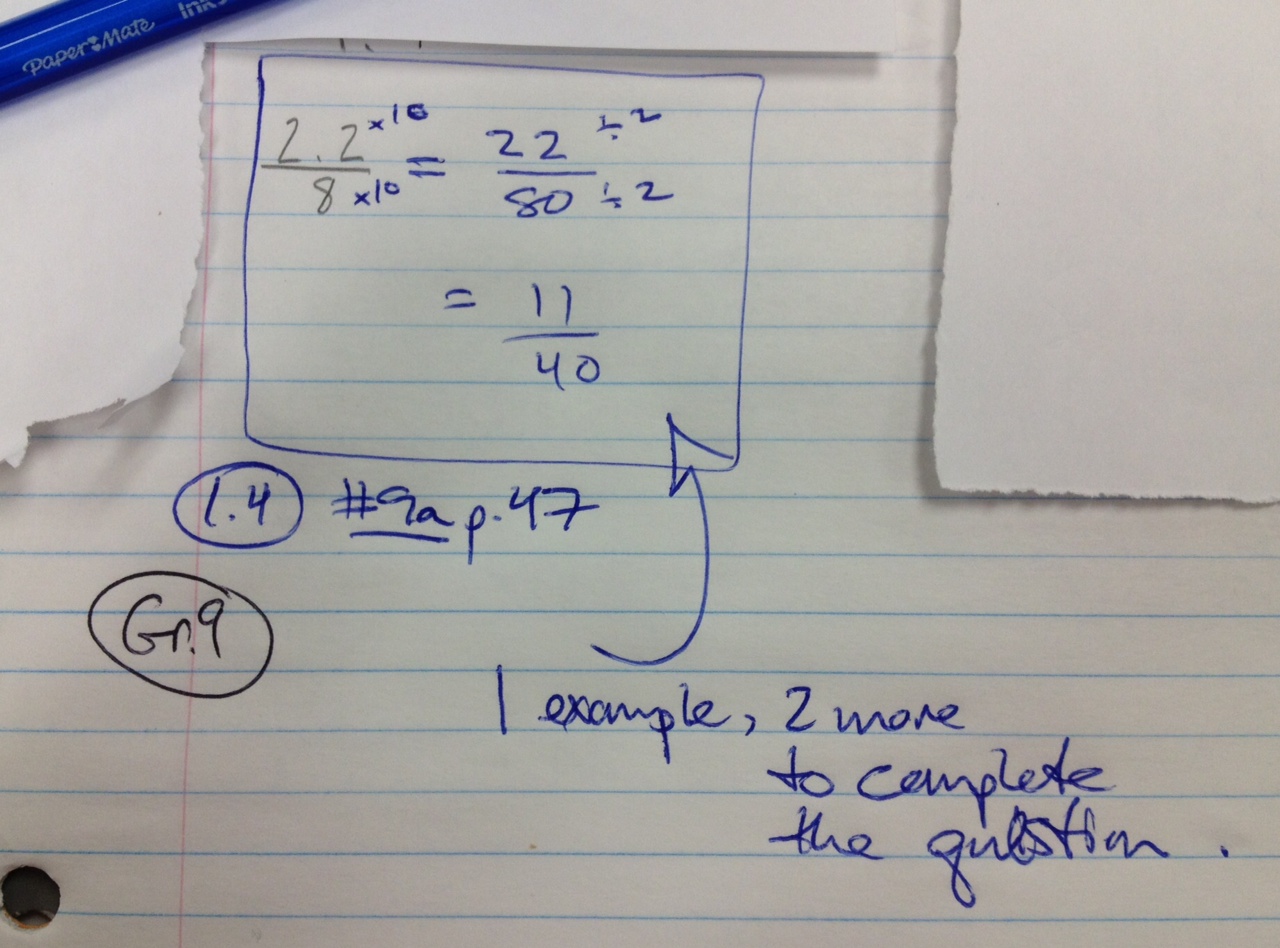 PAPER MATE Ink
2.2 x10 = 22 ÷ 2
8 x10 80 ÷ 2
= 11
40
1.4 #9a p.47
Gr.9
1 example, 2 more
to complete
the question.